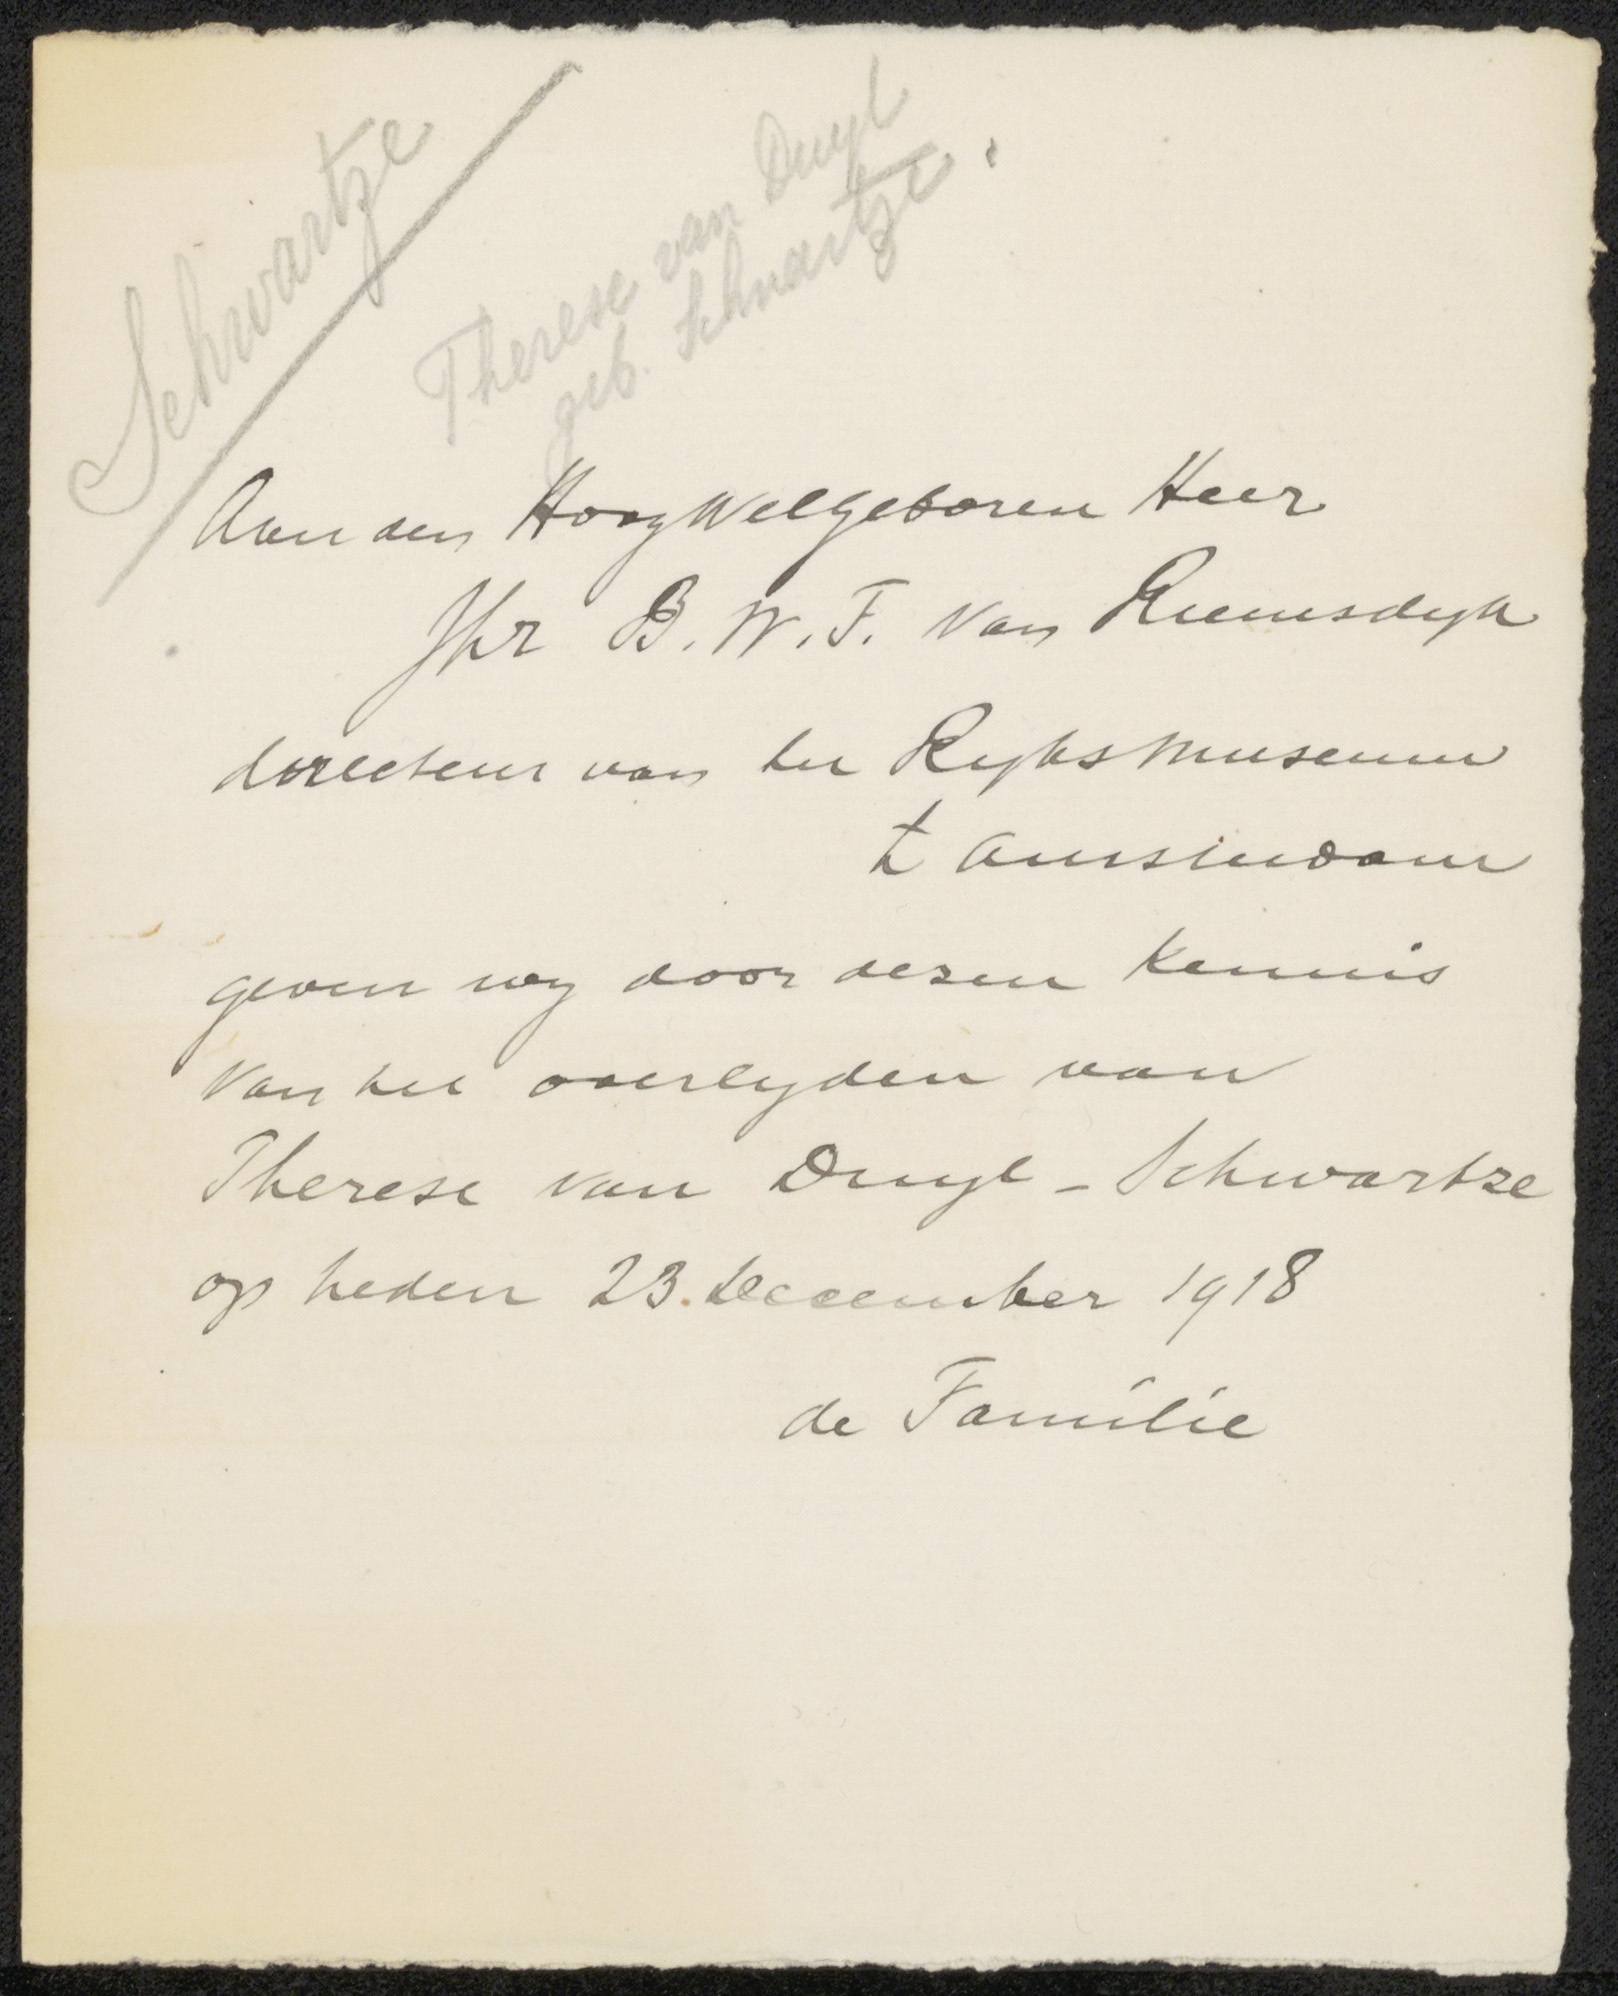 Schwartze
Therese van Duyl
geb. Schwartze.
Aan den HoogWelgeboren Heer
Jhr B. W. F. van Riemsdyk
directeur van het RyksMuseum
te Amsterdam
geven wy door dezen kennis
van het overlyden van
Therese van Duyl - Schwartze
op heden 23 December 1918
de Familie